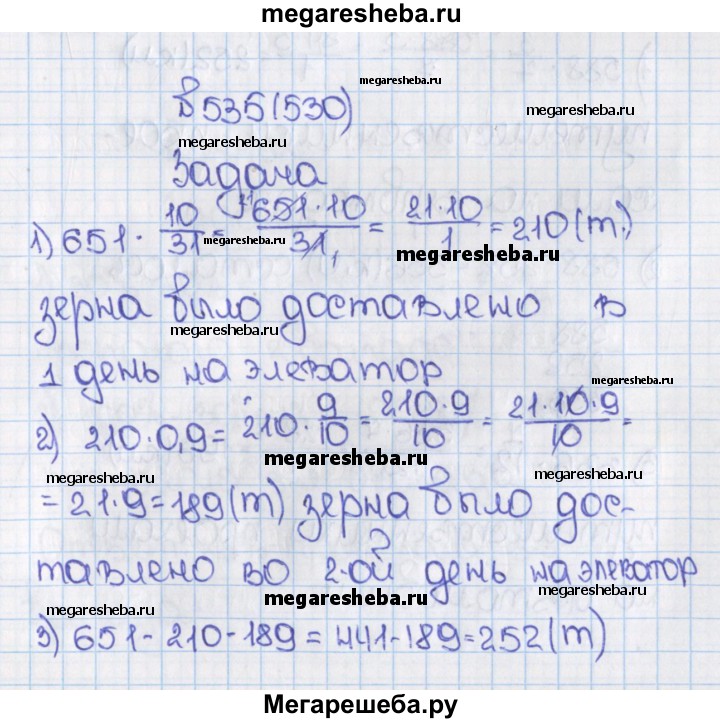 megaresheba.ru
В 535(530)
megaresheba.ru
megaresheba.ru
Задача
megaresheba.ru
1) 651 · 10/31 = 651·10/31 = 21·10/1 = 210(т.)
megaresheba.ru
megaresheba.ru
зерна было доставлено в
megaresheba.ru
1 день на элеватор
megaresheba.ru
2) 210·0,9 = 210 · 9/10 = 210·9/10 = 21·10·9/10 =
megaresheba.ru
megaresheba.ru
megaresheba.ru
= 21·9 = 189(т) зерна было дос-
тавлено во 2-ой день на элеватор
megaresheba.ru
megaresheba.ru
megaresheba.ru
3) 651 - 210 - 189 = 441 - 189 = 252(т)
Мегарешеба.ру